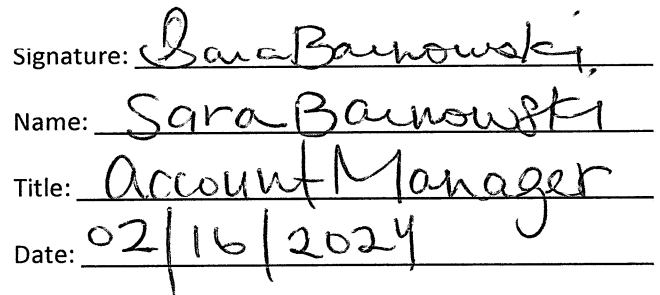 Signature: Sara Barnowski
Name: Sara Barnowski
Title: Account Manager
Date: 02/16/2024